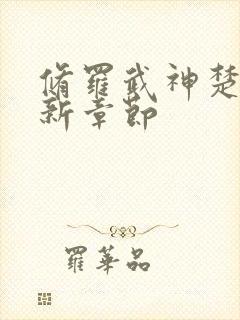 脩羅武神楚
新章節
羅華品